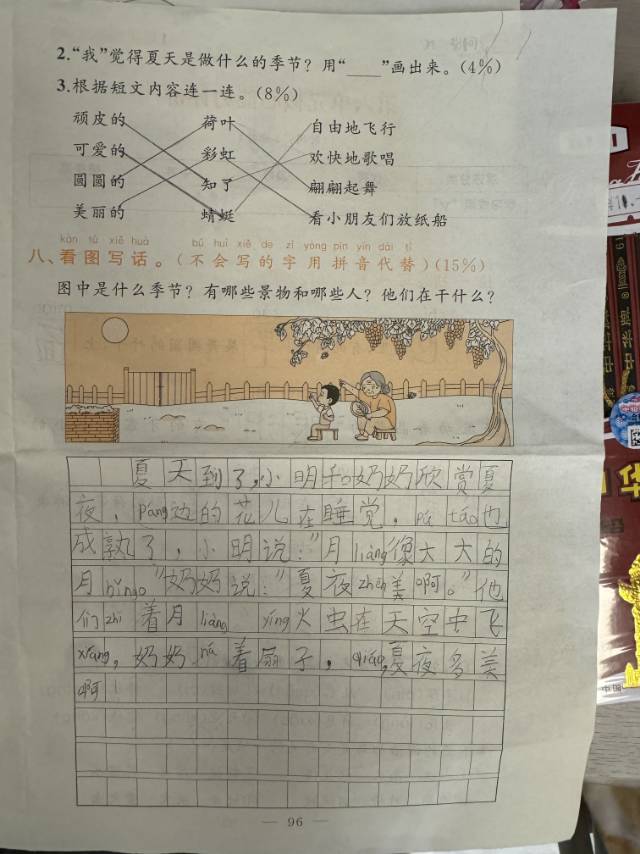 2.“我”觉得夏天是做什么的季节？用“____”画出来。(4%)
3.根据短文内容连一连。(8%)
顽皮的 荷叶 自由地飞行
可爱的 彩虹 欢快地歌唱
圆圆的 知了 翩翩起舞
美丽的 蜻蜓 看小朋友们放纸船
kàn tú xiě huà bú huì xiě de zì yòng pīn yīn dài tì
八、看图写话。(不会写的字用拼音代替)(15%)
图中是什么季节？有哪些景物和哪些人？他们在干什么？
夏天到了,小明和奶奶欣赏夏
夜，páng边的花儿在睡觉，pú táo也
成孰了，小明说：“月liàng像大大的
月bǐng。”奶奶说：“夏夜zhēn美啊。”他
们zhǐ着月liàng yíng火虫在天空中飞
xiáng，奶奶ná着扇子，qiáo,夏夜多美
啊！
— 96 —
中国